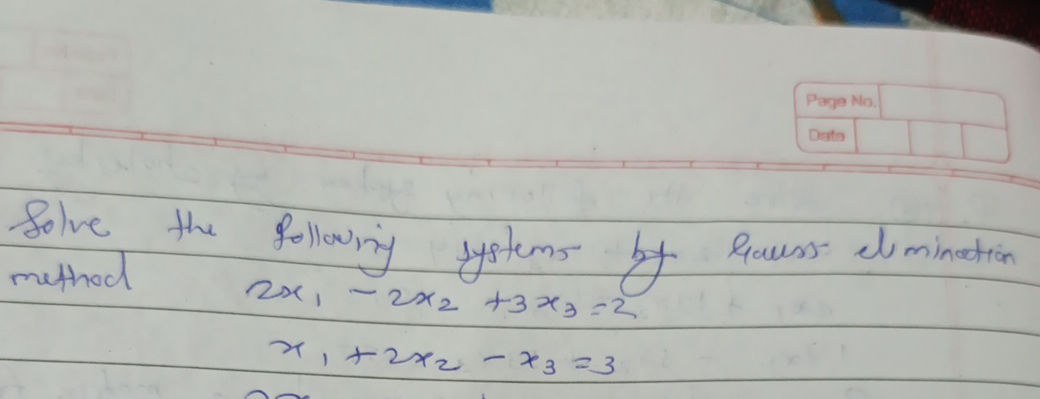 Page No.
Date
Solve the following systems by Gauss elimination
method 2x₁ - 2x₂ + 3x₃ = 2
x₁ + 2x₂ - x₃ = 3